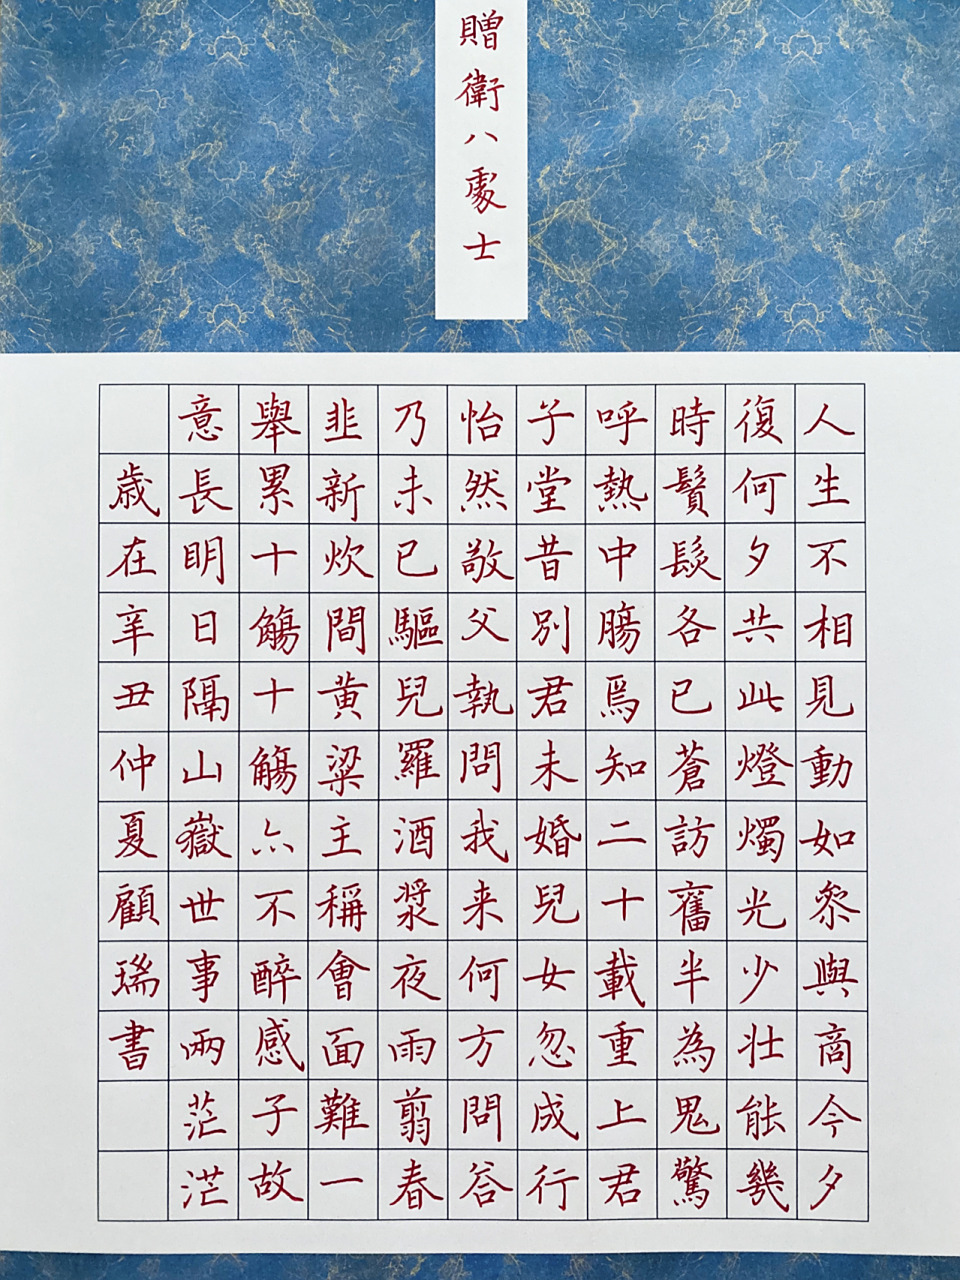 贈衛八處士
人生不相見動如參與商今夕
復何夕共此燈燭光少壯能幾
時鬢髮各已蒼訪舊半為鬼驚
呼熱中腸焉知二十載重上君
子堂昔別君未婚兒女忽成行
怡然敬父執問我来何方問答
乃未已驅兒羅酒漿夜雨翦春
韭新炊間黄粱主稱會面難一
舉累十觴十觴亦不醉感子故
意長明日隔山嶽世事兩茫茫
歲在辛丑仲夏顧瑞書